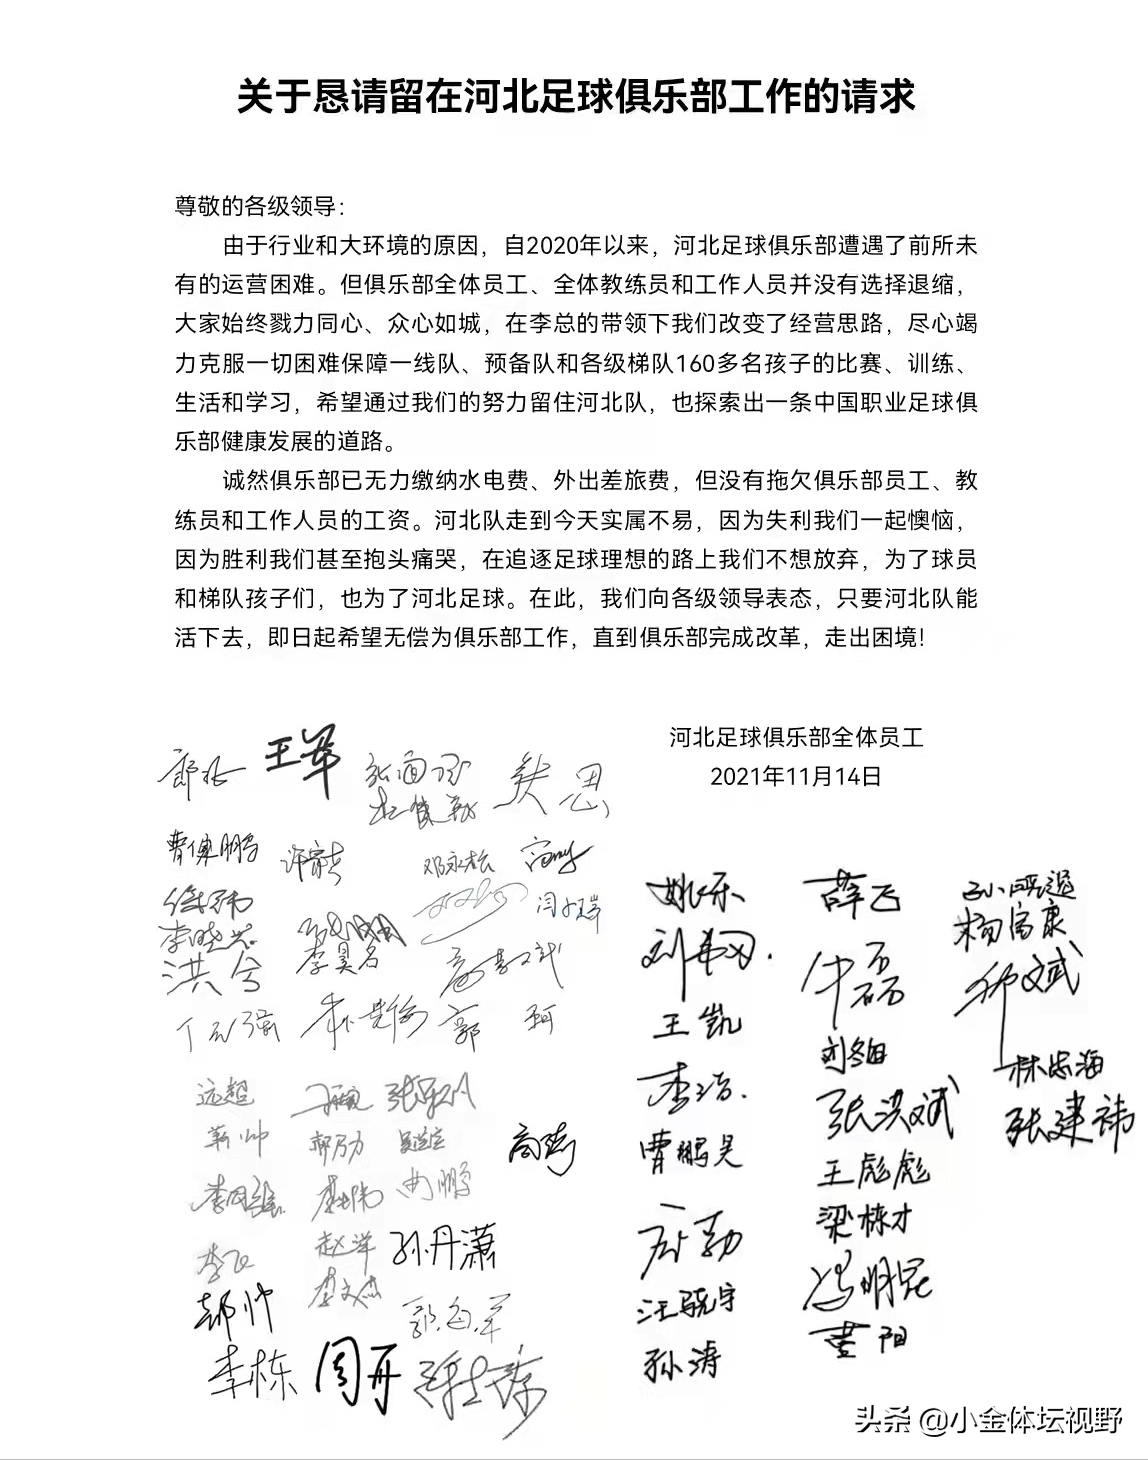 关于恳请留在河北足球俱乐部工作的请求
尊敬的各级领导：
由于行业和大环境的原因，自2020年以来，河北足球俱乐部遭遇了前所未
有的运营困难。但俱乐部全体员工、全体教练员和工作人员并没有选择退缩，
大家始终戮力同心、众心如城，在李总的带领下我们改变了经营思路，尽心竭
力克服一切困难保障一线队、预备队和各级梯队160多名孩子的比赛、训练、
生活和学习，希望通过我们的努力留住河北队，也探索出一条中国职业足球俱
乐部健康发展的道路。
诚然俱乐部已无力缴纳水电费、外出差旅费，但没有拖欠俱乐部员工、教
练员和工作人员的工资。河北队走到今天实属不易，因为失利我们一起懊恼，
因为胜利我们甚至抱头痛哭，在追逐足球理想的路上我们不想放弃，为了球员
和梯队孩子们，也为了河北足球。在此，我们向各级领导表态，只要河北队能
活下去，即日起希望无偿为俱乐部工作，直到俱乐部完成改革，走出困境！
河北足球俱乐部全体员工
2021年11月14日
王军
邓永松
李昊名
洪兮
郭 珂
远超
靳帅
曲鹏
李飞
赵洋
孙丹潇
李文杰
郝帅
李栋
周冉
姚乐
薛飞
杨富康
牛磊
王凯
李浩
林忠海
张洪斌
张建祎
曹鹏昊
王彪彪
梁栋才
汪骁宇
冯明冠
孙涛
董阳
头条 @小金体坛视野